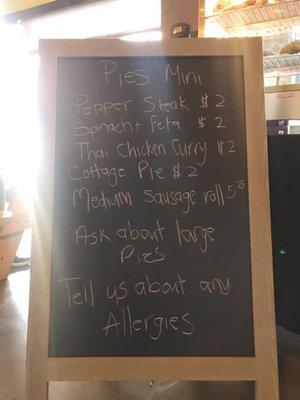 Pies Mini
Pepper Steak $2
Spinach + Feta $2
Thai Chicken Curry $2
Cottage Pie $2
Medium Sausage roll
Ask about large
Pie's
Tell us about any
Allergies